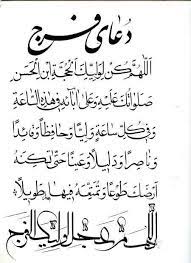 دعای فرج
اللهم کن لولیک الحجة ابن الحسن
صلواتک علیه وعلی آبائه فی هذه الساعة
وفی کل ساعة ولیا وحافظا وقائدا
وناصرا ودلیلا وعینا حتی تسکنه
ارضک طوعا وتمتعه فیها طویلا
اللهم عجل لولیک الفرج